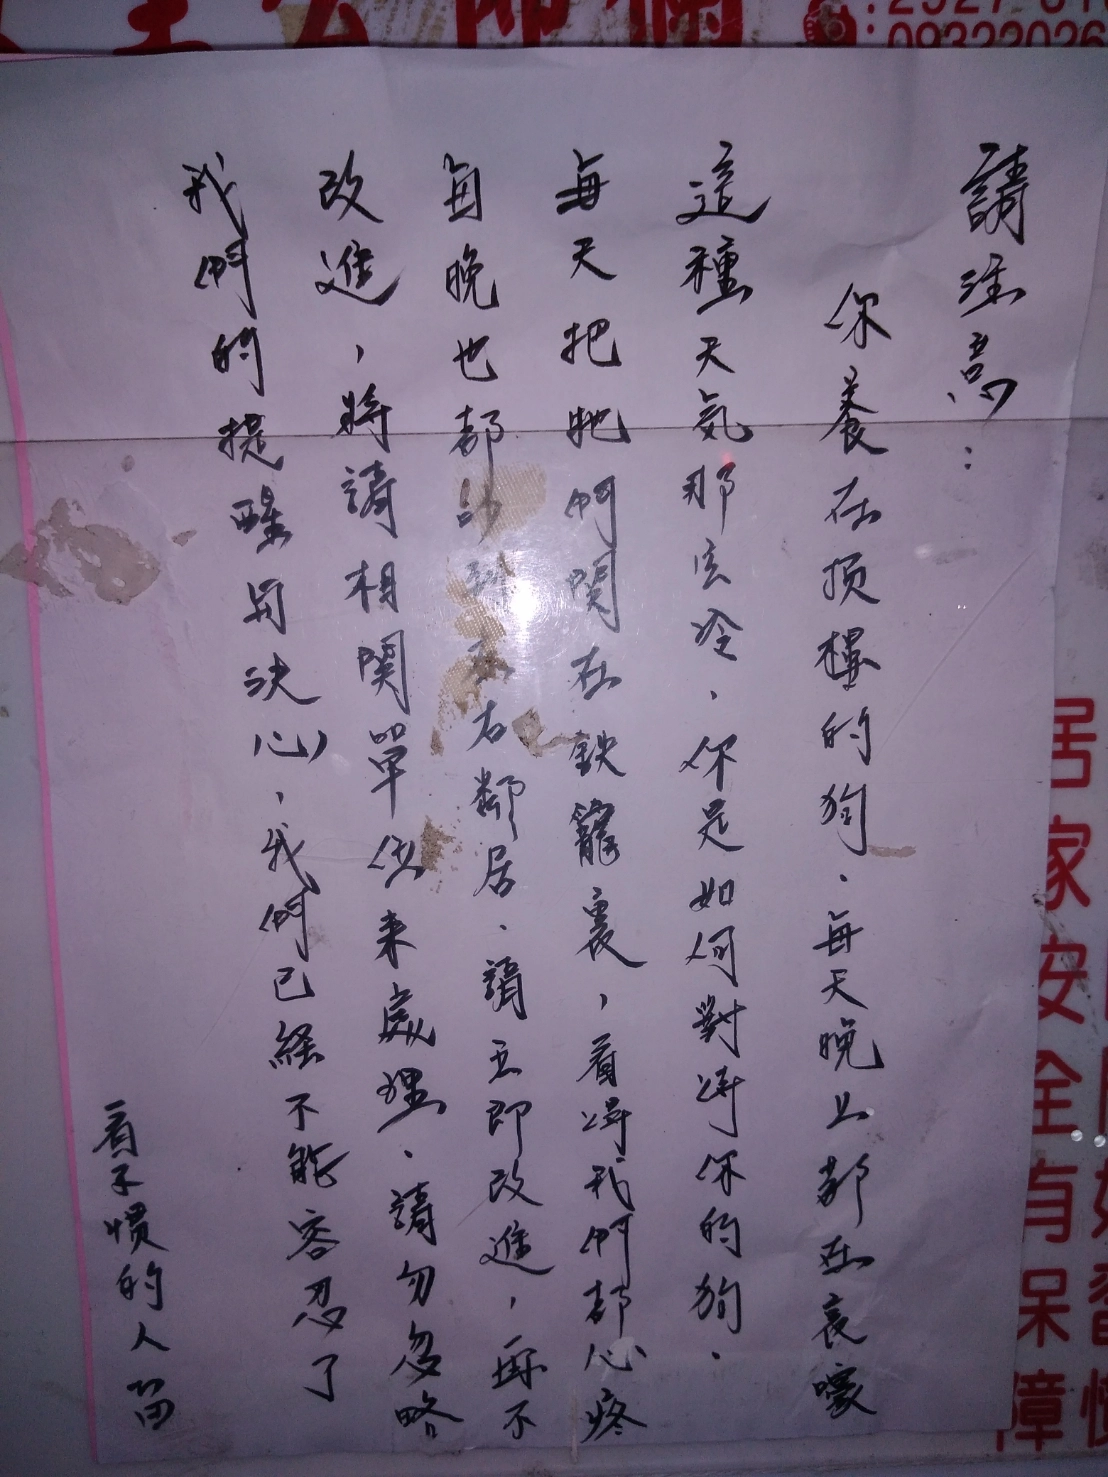 請注意：
你養在頂樓的狗、每天晚上都在哀嚎
這種天氣那広冷、你是如何對待你的狗、
每天把牠們関在鉄籠裏，看得我們都心疼
每晚也都吵到左右鄰居、請立即改進，再不
改進，將請相関單位來處理、請勿忽略
我們的提醒与決心、我們已経不能容忍了
看不慣的人留
居家安全有保障